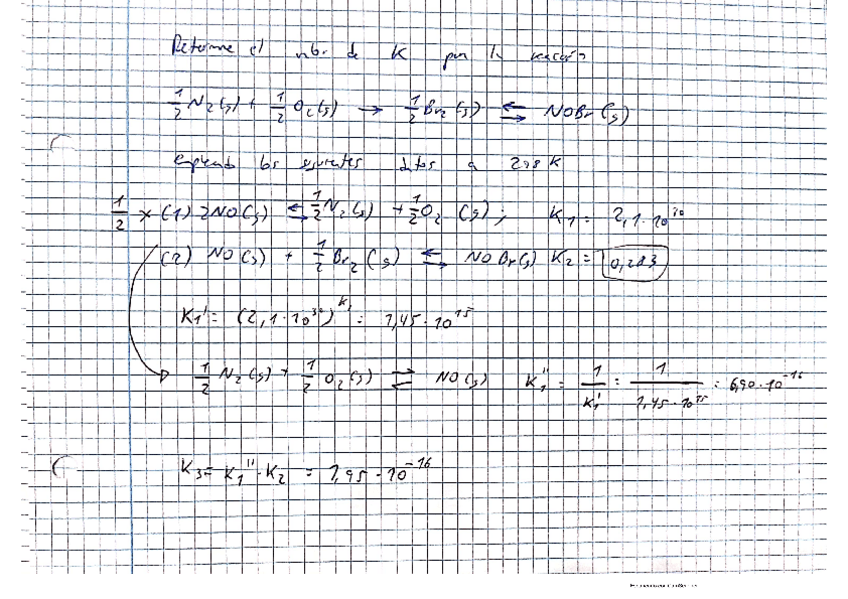 Determine el valor de K para la reacción
1/2 N2(g) + 1/2 O2(g) → 1/2 Br2(g) ⇆ NOBr(g)
empleando los siguientes datos a 298 K
1/2 × (1) 2NO(g) ⇆ 1/2 N2(g) + 1/2 O2(g); K1 = 2,1·10^30
(2) NO(g) + 1/2 Br2(g) ⇆ NOBr(g) K2 = 0,283
K1' = (2,1·10^30) = 1,45·10^15
1/2 N2(g) + 1/2 O2(g) ⇄ NO(g) K1'' = 1/K1' = 1/1,45·10^15 = 6,90·10^-16
K3 = K1''·K2 = 1,95·10^-16